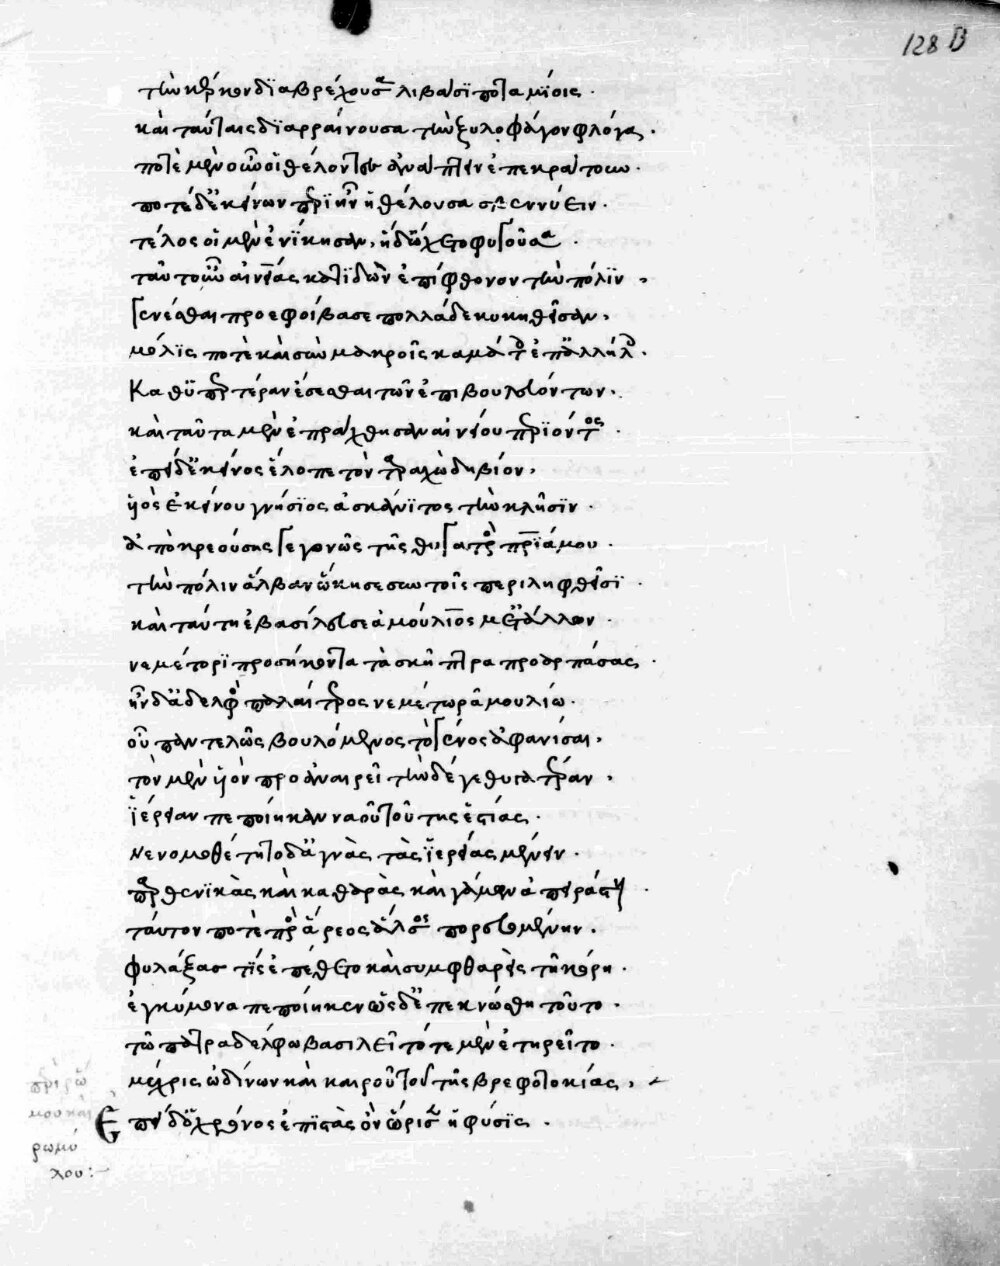 128 B
τὴν κέρκον διαβρέχουσα λιβάσϊ ποταμίοις .
καὶ ταύταις διαρραίνουσα τὴν ξυλοφάγον φλόγα .
ποτὲ μὲν οὖν οἱ θέλοντες ἀνάπτειν ἐπεκράτουν .
ποτὲ δ' ἐκείνων πρϊὴν ἡ θέλουσα σβεννύειν .
τέλος οἱ μὲν ἐνίκησαν , ἡ δ' ᾤχετο φυγοῦσα .
ταῦτ' οὖν αἰνείας κατϊδὼν ἐπίφθονον τὴν πόλϊν ,
γενέσθαι προεφοίβασε πολλὰ δὲ κυκηθεῖσαν ,
μόλϊς ποτὲ καὶ σὺν μακροῖς καμάτοις ἐπαλλήλοις .
Καθϋπερτέραν ἔσεσθαι τῶν ἐπιβουλευόντων .
καὶ ταῦτα μὲν ἐπράχθησαν αἰνείου περϊόντος .
ἐπεὶ δ' ἐκεῖνος ἔλοιπε τὸν τραχώδη βίον ,
ϋἱὸς ἐκείνου γνήσϊος ἀσκάνϊτος τὴν κλῆσϊν .
ἀπὸ κρεούσης γεγονὼς τῆς θυγατρὸς πρϊάμου .
τὴν πόλιν ἄλβαν ᾤκησε σὺν τοῖς περιληφθεῖσϊ .
καὶ ταύτη ἐβασίλευσε ἀμούλϊος μετ' ἄλλον .
νεμέτορϊ προσήκοντα τὰ σκῆπτρα προαρπάσας .
ἦν δ' ἀδελφὸς παλαίτερος νεμέτωρ ἀμουλίω .
οὗ παντελῶς βουλόμενος τὸ γένος ἀφανίσαι ,
τὸν μὲν ϋἱὸν προαναιρεῖ τὴν δέ γε θυγατέραν ,
ϊέρειαν πεποίηκαν ναοῦ τοῦ τῆς ἑστίας .
Νενομοθέτητο δ' ἁγνὰς τὰς ϊερείας μένειν .
παρθενϊκὰς καὶ καθαρὰς καὶ γάμων ἀπειράστους .
ταύτην ποτὲ πρὸς ἄρεος ἄλσος πορευομένην .
φυλάξας τϊς ἐπέθετο καὶ συμφθαρεὶς τῇ κόρη .
ἐγκύμονα πεποίηκεν ὡς δ' ἐπεγνώσθη τοῦτο .
τῷ πατραδέλφω βασιλεῖ τότε μὲν ἐτηρεῖτο .
μέχρις ὠδίνων καὶ καιροῦ τοῦ τῆς βρεφοτοκίας ,
Ἐπεὶ δ' ὁ χρόνος ἐπϊστὰς ὃν ὥρισεν ἡ φύσϊς .
περὶ ῥώ
μου καὶ
ρωμύ
λου :-